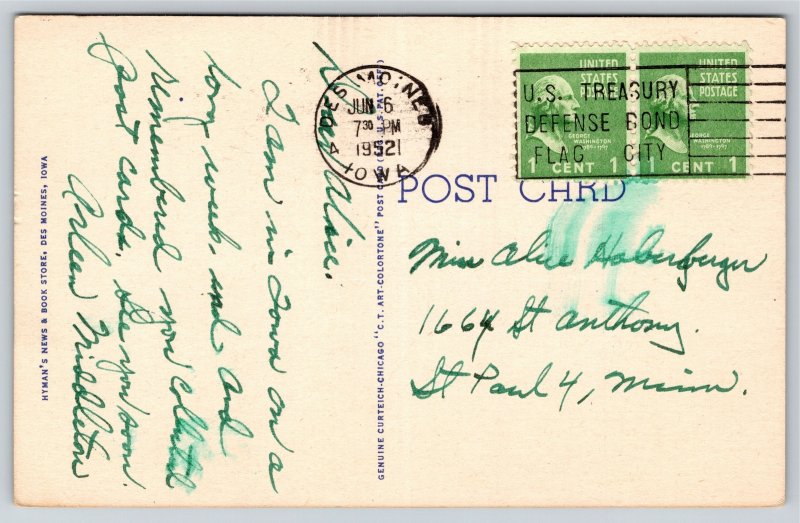 Dear Alice,
I am in Iowa on a
long week-end and
remembered you collected
post cards. See you soon.
Arleen Middleton
HYMAN'S NEWS & BOOK STORE, DES MOINES, IOWA
GENUINE CURTEICH-CHICAGO "C. T. ART-COLORTONE" POST CARD (REG. U. S. PAT. OFF.)
DES MOINES
JUN 6
7 30 PM
1952
IOWA
U.S. TREASURY
DEFENSE BOND
FLAG CITY
UNITED
STATES
POSTAGE
GEORGE
WASHINGTON
1789-1797
1 CENT 1
UNITED
STATES
POSTAGE
GEORGE
WASHINGTON
1789-1797
1 CENT 1
POST CARD
Miss Alice Haberberger
1664 St Anthony.
St Paul 4, Minn.